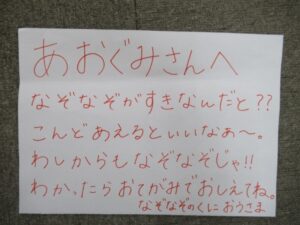 あおぐみさんへ
なぞなぞがすきなんだと??
こんどあえるといいなぁ〜。
わしからもなぞなぞじゃ!!
わかったらおてがみでおしえてね。
なぞなぞのくに おうさま